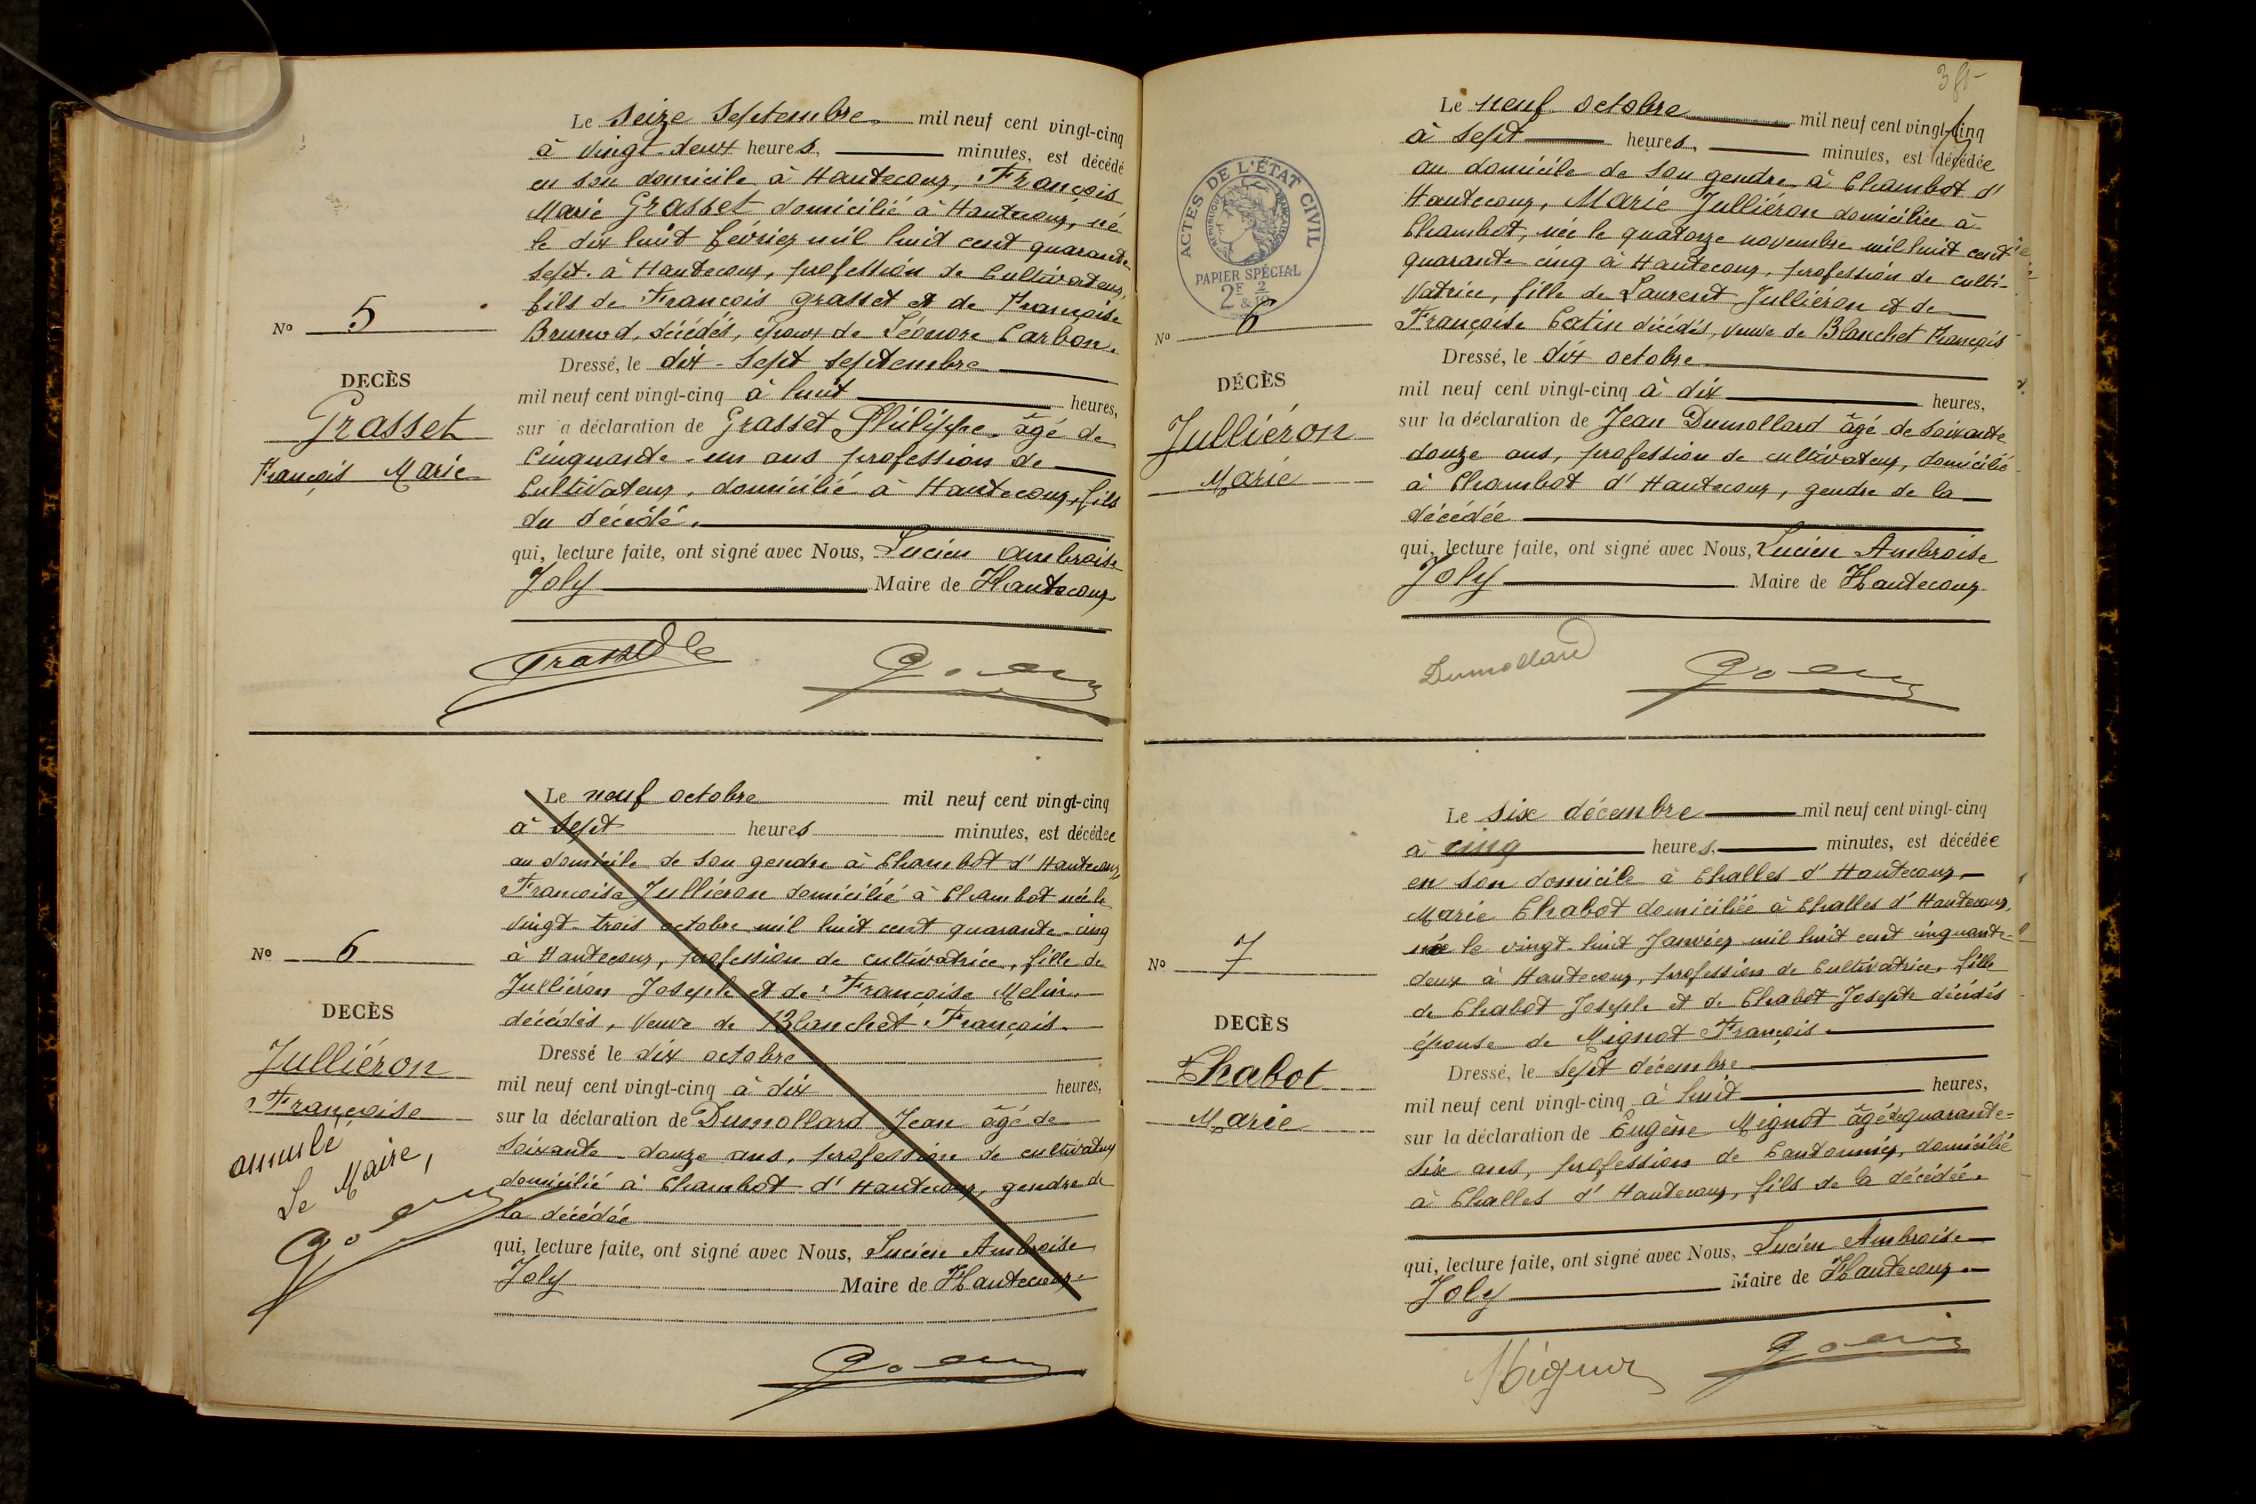 Le seize Septembre mil neuf cent vingt-cinq
à vingt-deux heures, minutes, est décédé
en son domicile à Hautecour, François
Marie Grasset domicilié à Hautecour, né
le dix huit février mil huit cent quarante
sept à Hautecour, profession de Cultivateur,
fils de François Grasset et de Françoise
décédés, époux de Léonore Carbon.
No 5
Dressé, le dix-sept septembre
DECÈS
mil neuf cent vingt-cinq à huit heures,
Grasset
sur la déclaration de Grasset Philippe âgé de
François Marie
Cinquante-un ans profession de
Cultivateur, domicilié à Hautecour, fils
du décédé.
qui, lecture faite, ont signé avec Nous, Lucien Ambroise
Joly Maire de Hautecour
Grasset
Joly
Le neuf octobre mil neuf cent vingt-cinq
à sept heures minutes, est décédée
au domicile de son gendre à Chambot d'Hautecour,
Françoise Julliéron domicilié à Chambot née le
vingt-trois octobre mil huit cent quarante-cinq
No 6
à Hautecour, profession de cultivatrice, fille de
Julliéron Joseph et de Françoise Melin
DECÈS
décédés, veuve de Blanchet François.
Julliéron
Dressé le dix octobre
Françoise
mil neuf cent vingt-cinq à dix heures,
annulé
sur la déclaration de Dumollard Jean âgé de
Le Maire,
soixante-douze ans, profession de cultivateur
Joly
domicilié à Chambot d'Hautecour, gendre de
la décédée
qui, lecture faite, ont signé avec Nous, Lucien Ambroise
Joly Maire de Hautecour
Joly
Le neuf octobre mil neuf cent vingt-cinq
à sept heures, minutes, est décédée
au domicile de son gendre à Chambot d'
Hautecour, Marie Julliéron domiciliée à
Chambot, née le quatorze novembre mil huit cent
quarante-cinq à Hautecour, profession de culti-
vatrice, fille de Laurent Julliéron et de
Françoise Catin décédés, veuve de Blanchet François
ACTES DE L'ÉTAT CIVIL
RÉPUBLIQUE FRANÇAISE
PAPIER SPÉCIAL
2F & 2/10
No 6
Dressé, le dix octobre
DÉCÈS
mil neuf cent vingt-cinq à dix heures,
Julliéron
sur la déclaration de Jean Dumollard âgé de soixante
Marie
douze ans, profession de cultivateur, domicilié
à Chambot d'Hautecour, gendre de la
décédée
qui, lecture faite, ont signé avec Nous, Lucien Ambroise
Joly Maire de Hautecour
Dumollard
Joly
Le six décembre mil neuf cent vingt-cinq
à cinq heures, minutes, est décédée
en son domicile à Challes d'Hautecour
Marie Chabot domiciliée à Challes d'Hautecour,
née le vingt-huit Janvier mil huit cent cinquante-
No 7
deux à Hautecour, profession de Cultivatrice, fille
de Chabot Joseph et de Chabot Josepte décédés
DECÈS
épouse de Mignot François
Chabot
Dressé, le sept décembre
Marie
mil neuf cent vingt-cinq à huit heures,
sur la déclaration de Eugène Mignot âgé de quarante-
six ans, profession de Cantonnier, domicilié
à Challes d'Hautecour, fils de la décédée.
qui, lecture faite, ont signé avec Nous, Lucien Ambroise
Joly Maire de Hautecour
Mignot
Joly